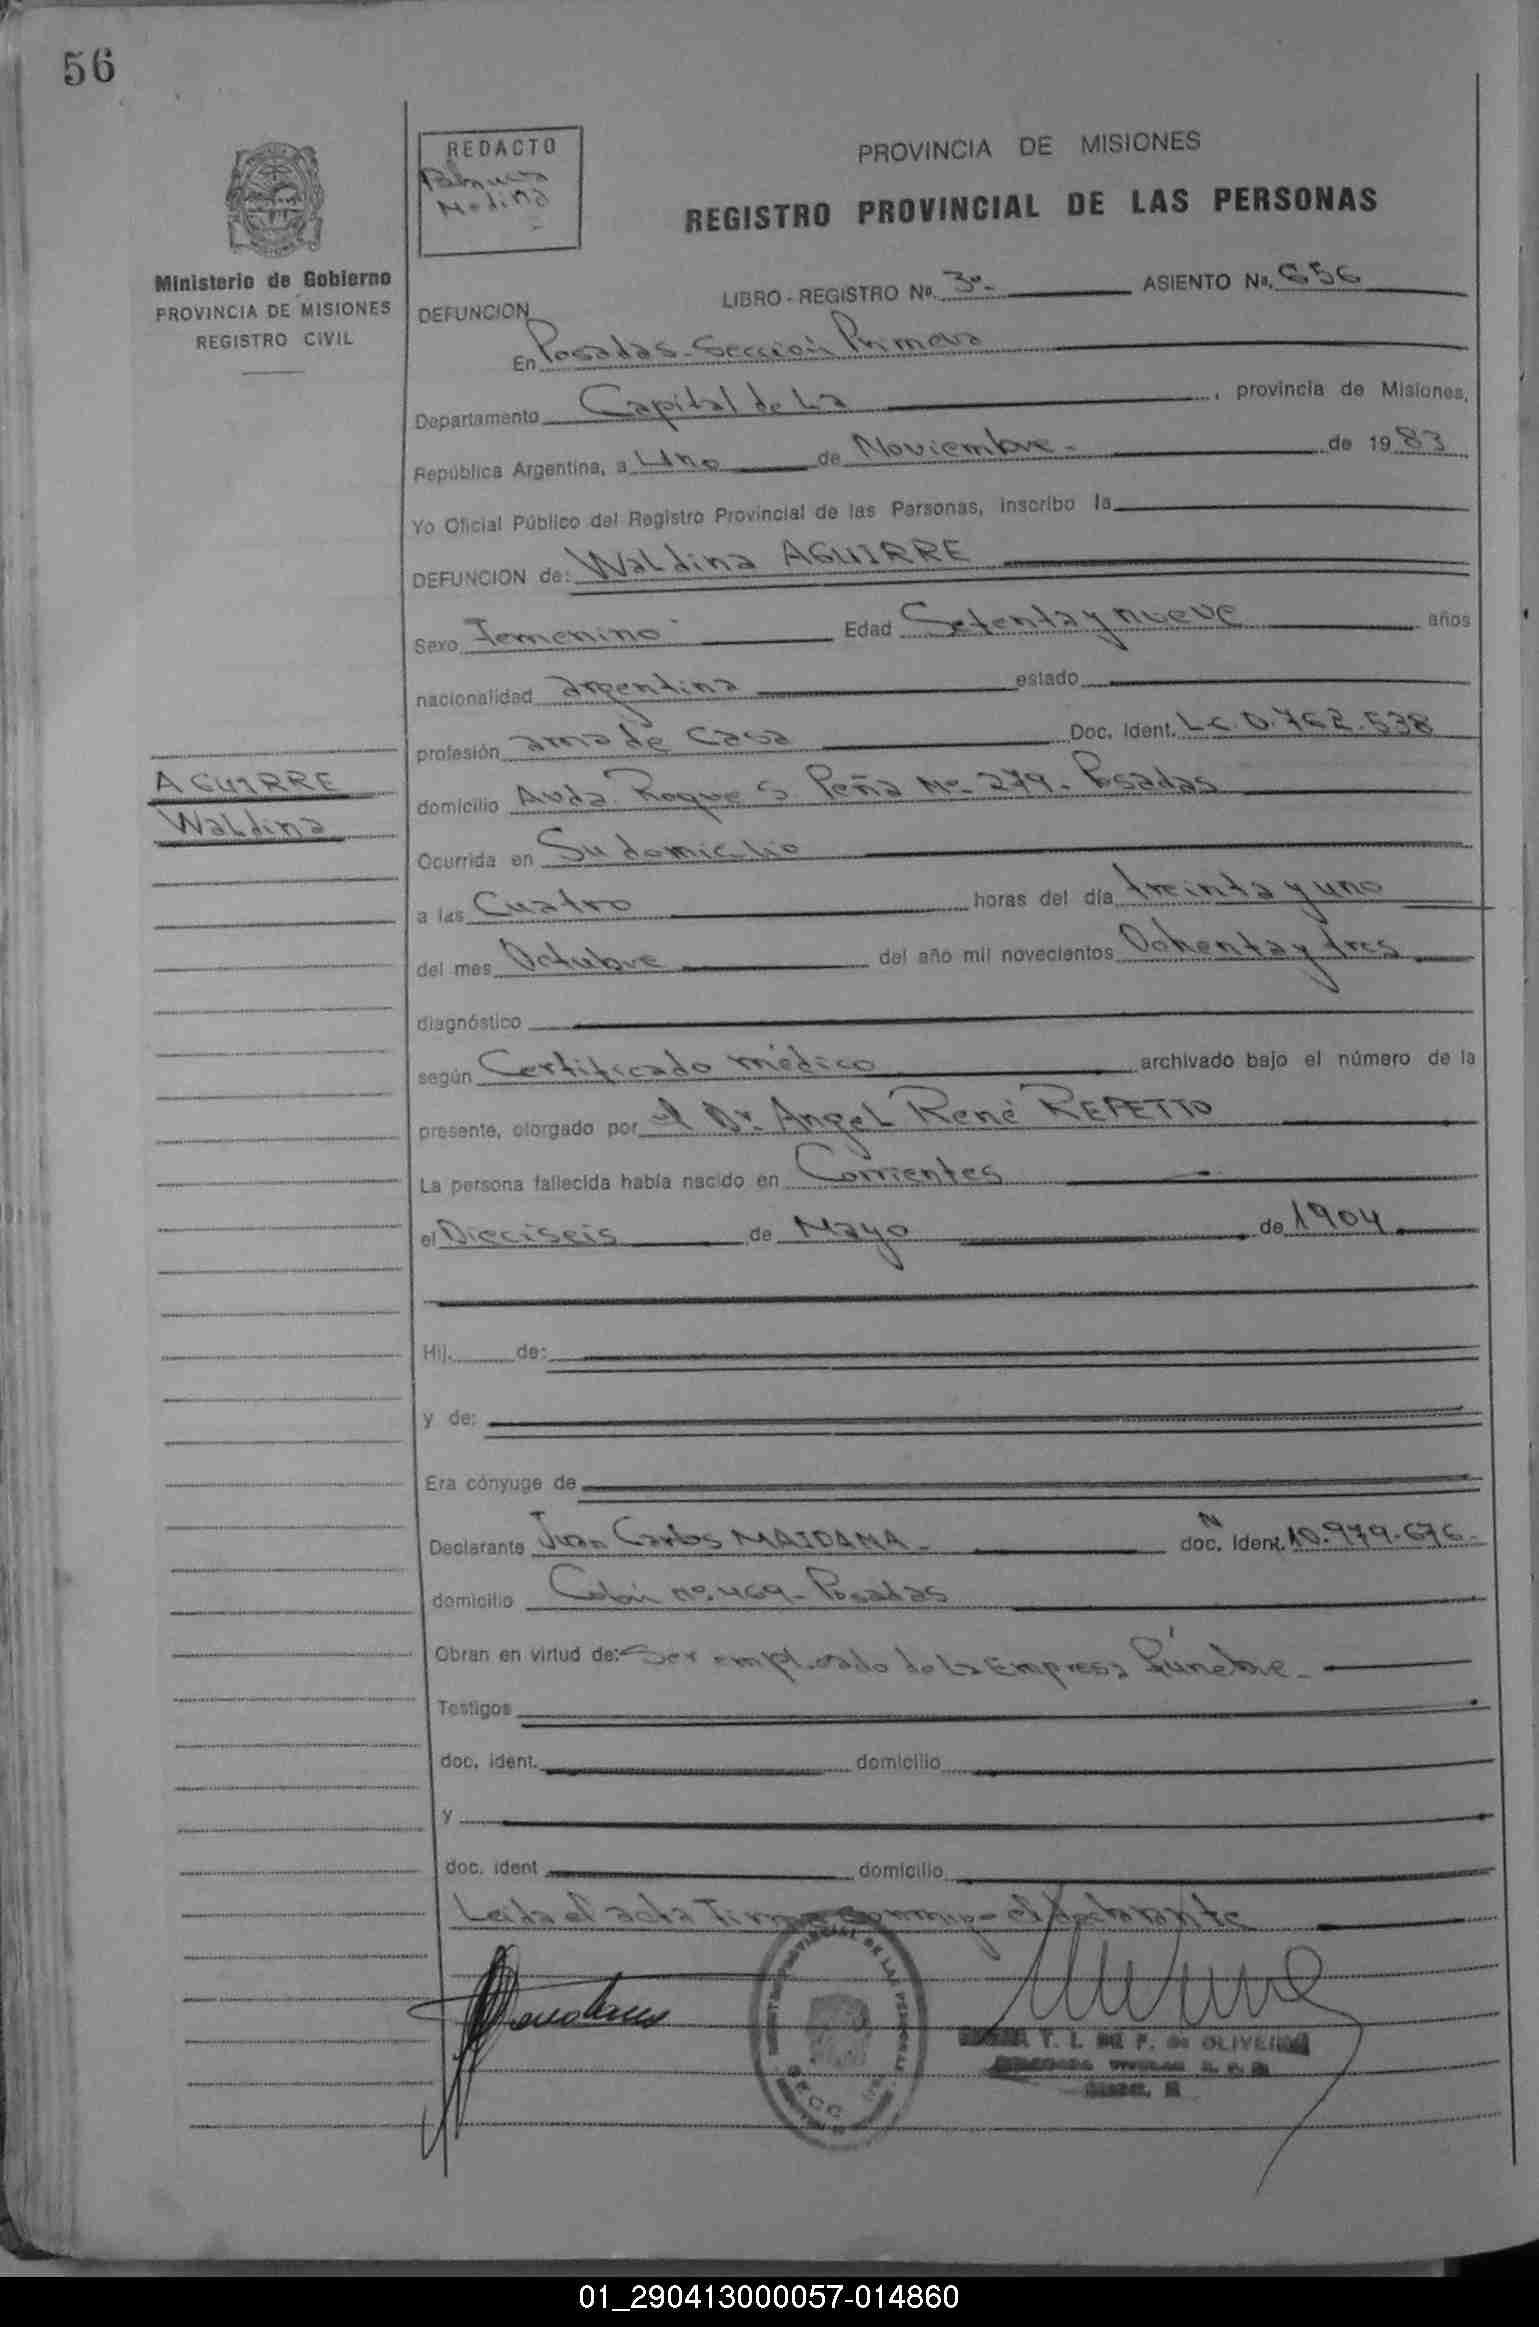 56
REDACTO
Medina
PROVINCIA DE MISIONES
REGISTRO PROVINCIAL DE LAS PERSONAS
Ministerio de Gobierno
PROVINCIA DE MISIONES
REGISTRO CIVIL
LIBRO - REGISTRO Nº. 3º.- ASIENTO Nº. 656
DEFUNCION
En Posadas - Sección Primera
Departamento Capital de La , provincia de Misiones,
República Argentina, a Uno de Noviembre - de 1983
Yo Oficial Público del Registro Provincial de las Personas, inscribo la
DEFUNCION de: Waldina AGUIRRE
Sexo Femenino Edad Setenta y nueve años
nacionalidad argentina estado
profesión ama de casa Doc. Ident. L.C 0.762.538
AGUIRRE
Waldina
domicilio Avda. Roque S. Peña Nº- 279- Posadas
Ocurrida en Su domicilio
a las Cuatro horas del día treinta y uno
del mes Octubre del año mil novecientos Ochenta y tres
diagnóstico
según Certificado médico archivado bajo el número de la
presente, otorgado por el Dr. Angel René REPETTO
La persona fallecida había nacido en Corrientes
el Dieciseis de Mayo de 1904
Hij de:
y de:
Era cónyuge de
Declarante Juan Carlos MAIDANA - doc. Ident. N 10.979-676-
domicilio Colón Nº.469- Posadas
Obran en virtud de: Ser empleado de la Empresa Fúnebre -
Testigos
doc. ident. domicilio
y
doc. ident domicilio
Leida el acta Firma conmigo el declarante
T. I. DE P. de OLIVEIRA
01_290413000057-014860